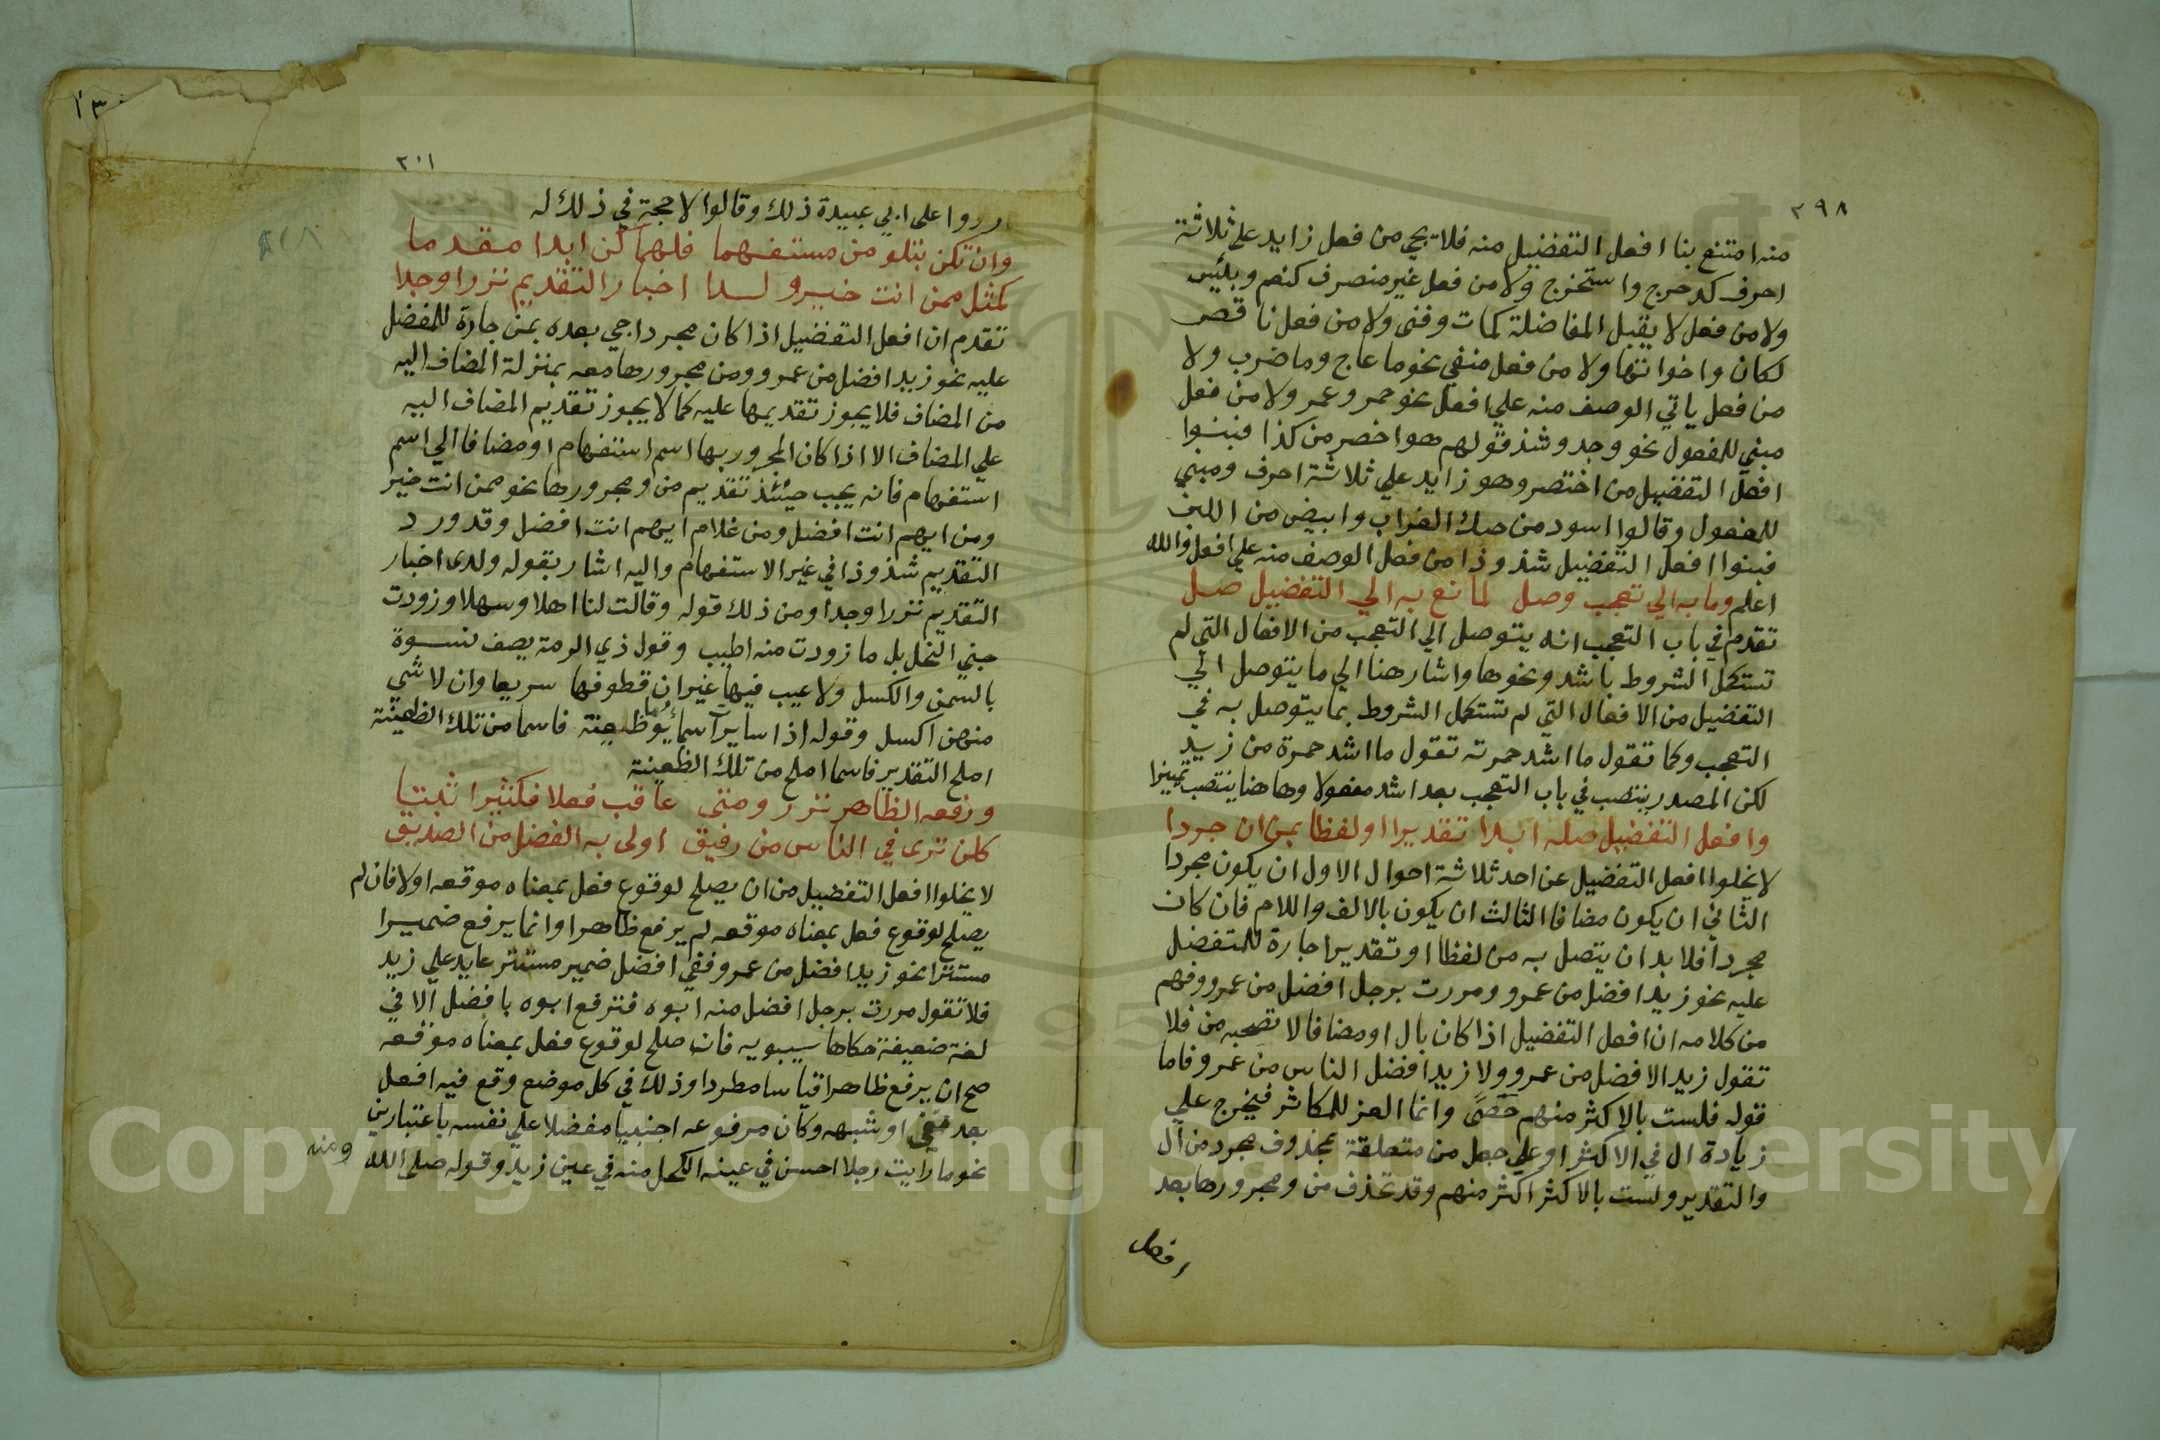 ٢٩٨
منه امتنع بنا افعل التفضيل منه فلا يجي من فعل زايد علي ثلاثة
احرف كدحرج واستخرج ولا من فعل غير منصرف كنعم وبئس
ولا من فعل لا يقبل المفاضلة كمات وفنى ولا من فعل ناقص
لكان واخواتها ولا من فعل منفي نحو ما عاج وما ضرب ولا
من فعل ياتي الوصف منه علي افعل نحو حمر وعمر ولا من فعل
مبني للمفعول نحو وجد وشذ قولهم هو اخصر من كذا فبنوا
افعل التفضيل من اختصر وهو زايد علي ثلاثة احرف ومبني
للمفعول وقالوا اسود من حلك الغراب وابيض من اللبن
فبنوا افعل التفضيل شذوذا من فعل الوصف منه علي افعل والله
اعلم وما به الي تعجب وصل لمانع به الي التفضيل صل
تقدم في باب التعجب انه يتوصل الي التعجب من الافعال التي لم
تستكمل الشروط باشد ونحوها واشار هنا الي ما يتوصل الي
التفضيل من الافعال التي لم تستكمل الشروط بما يتوصل به في
التعجب وكما تقول ما اشد حمرته تقول ما اشد حمرة من زيد
لكن المصدر ينتصب في باب التعجب بعد اشد مفعولا وهاهنا ينتصب تمييزا
وافعل التفضيل صله ابدا تقديرا او لفظا بمن ان جردا
لا يخلوا افعل التفضيل عن احد ثلاثة احوال الاول ان يكون مجردا
الثاني ان يكون مضافا الثالث ان يكون بالالف واللام فان كان
مجردا فلا بد ان يتصل به من لفظا او تقديرا جارة للتفضل
عليه نحو زيد افضل من عمرو ومررت برجل افضل من عمرو وفهم
من كلامه ان افعل التفضيل اذا كان بال او مضافا لا تصحبه من فلا
تقول زيد الافضل من عمرو ولا زيد افضل الناس من عمرو فاما
قوله فلست بالاكثر منهم حصى وانما العز للكاثر فيخرج علي
زيادة ال في الاكثر او علي جعل من متعلقة بمحذوف مجرد من ال
والتقدير ولست بالاكثر اكثر منهم وقد تحذف من ومجرورها بعد
افعل
٣٠١
وردوا على ابي عبيدة ذلك وقالوا لا حجة في ذلك له
وان تكن بتلو من مستفهما فلهما كن ابدا مقدما
كمثل ممن انت خير ولدا اخبار التقديم نزرا وجدا
تقدم ان افعل التفضيل اذا كان مجردا جي بعده بمن جارة للمفضل
عليه نحو زيد افضل من عمرو ومن مجرورها معه بمنزلة المضاف اليه
من المضاف فلا يجوز تقديمها عليه كما لا يجوز تقديم المضاف اليه
علي المضاف الا اذا كان المجرور بها اسم استفهام او مضافا الي اسم
استفهام فانه يجب حينئذ تقديم من ومجرورها نحو ممن انت خير
ومن ايهم انت افضل ومن غلام ايهم انت افضل وقد ورد
التقديم شذوذا في غير الاستفهام واليه اشار بقوله ولدى اخبار
التقديم نزرا وجدا ومن ذلك قوله وقالت لنا اهلا وسهلا وزودت
جني النحل بل ما زودت منه اطيب وقول ذي الرمة يصف نسوة
بالسمن والكسل ولا عيب فيها غير ان قطوفها سريعا وان لا شي
منهن اكسل وقوله اذا سايرت اسما يوما ظعينة فاسما من تلك الظعينة
املح التقدير فاسما املح من تلك الظعينة
ورفعه الظاهر نزر ومتى عاقب فعلا فكثيرا ثبتا
كلن ترى في الناس من رفيق اولى به الفضل من الصديق
لا يخلوا افعل التفضيل من ان يصلح لوقوع فعل بمعناه موقعه اولا فان لم
يصلح لوقوع فعل بمعناه موقعه لم يرفع ظاهرا وانما يرفع ضميرا
مستترا نحو زيد افضل من عمرو ففي افضل ضمير مستتر عايد علي زيد
فلا تقول مررت برجل افضل منه ابوه فترفع ابوه بافضل الا في
لغة ضعيفة حكاها سيبويه فان صلح لوقوع فعل بمعناه موقعه
صح ان يرفع ظاهرا قياسا مطردا وذلك في كل موضع وقع فيه افعل
بعد نفي او شبهه وكان مرفوعه اجنبيا مفضلا علي نفسه باعتبارين
نحو ما رايت رجلا احسن في عينه الكحل منه في عين زيد وقوله صلى الله
ومنه
Copyright © King Saud University